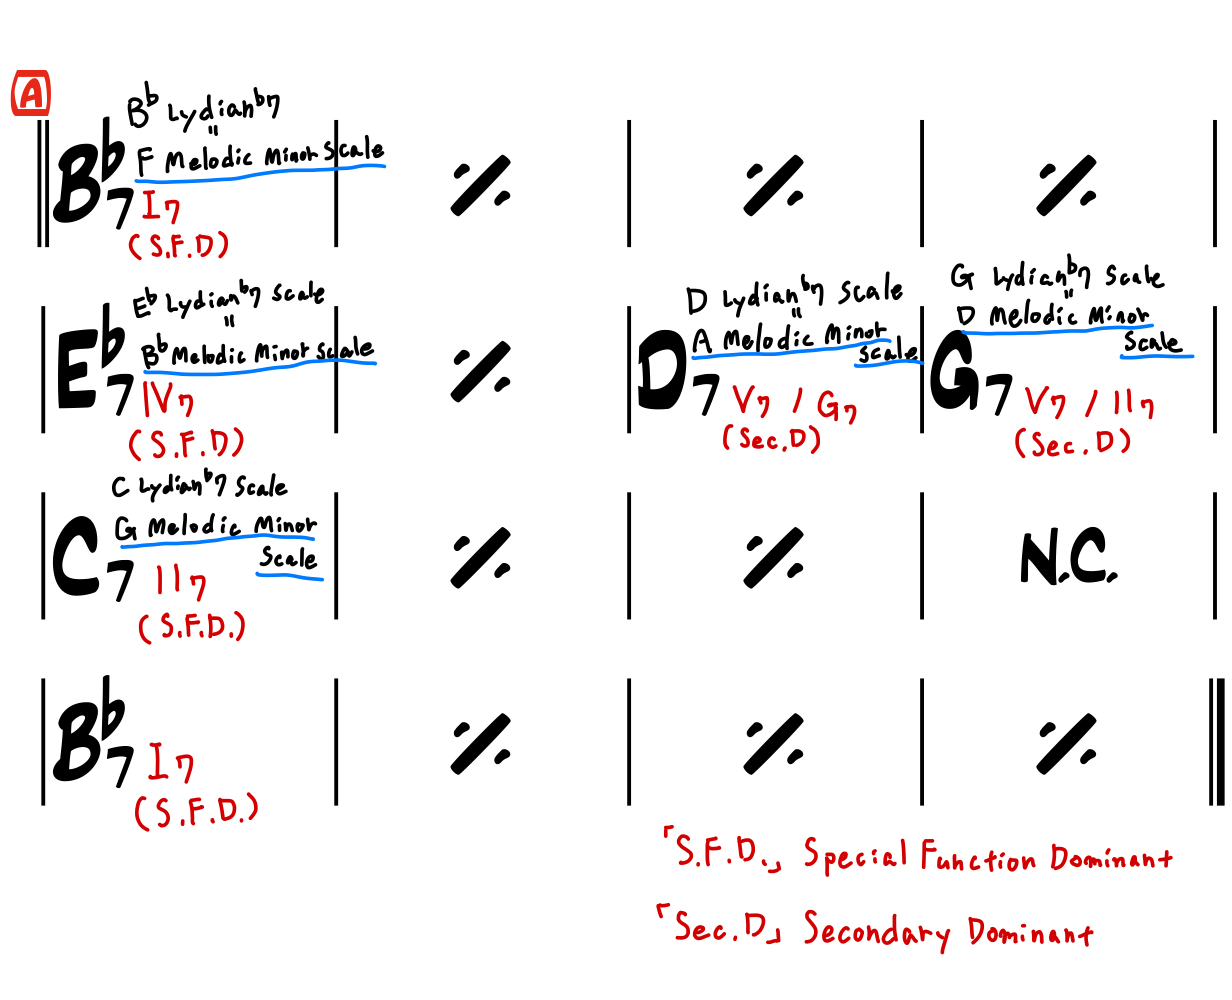 A
B♭ Lydian♭7
"
F Melodic Minor Scale
B♭7 I7
(S.F.D)
E♭ Lydian♭7 Scale
"
B♭ Melodic Minor Scale
E♭7 IV7
(S.F.D)
D Lydian♭7 Scale
"
A Melodic Minor
Scale
D7 V7 / G7
(Sec.D)
G Lydian♭7 Scale
"
D Melodic Minor
Scale
G7 V7 / II7
(Sec.D)
C Lydian♭7 Scale
G Melodic Minor
Scale
C7 II7
(S.F.D.)
N.C.
B♭7 I7
(S.F.D.)
「S.F.D.」 Special Function Dominant
「Sec.D」 Secondary Dominant